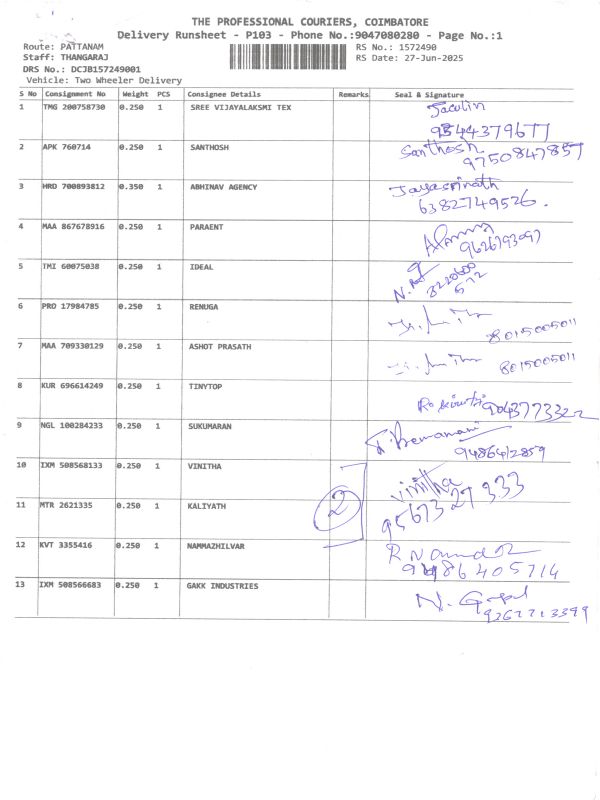 THE PROFESSIONAL COURIERS, COIMBATORE
Delivery Runsheet - P103 - Phone No.:9047080280 - Page No.:1
Route: PATTANAM RS No.: 1572490
Staff: THANGARAJ RS Date: 27-Jun-2025
DRS No.: DCJB157249001
Vehicle: Two Wheeler Delivery
S No Consignment No Weight PCS Consignee Details Remarks Seal & Signature
1 TMG 200758730 0.250 1 SREE VIJAYALAKSMI TEX Jaculin
2 APK 760714 0.250 1 SANTHOSH Santhosh
9750847857
3 HRD 700893812 0.350 1 ABHINAV AGENCY Jayasrinath
6382749526.
4 MAA 867678916 0.250 1 PARAENT
9626793097
5 TMI 60075038 0.250 1 IDEAL
8220600
672
6 PRO 17984785 0.250 1 RENUGA
8015005011
7 MAA 709330129 0.250 1 ASHOT PRASATH
8015005011
8 KUR 696614249 0.250 1 TINYTOP
9 NGL 100284233 0.250 1 SUKUMARAN
9486412859
10 IXM 508568133 0.250 1 VINITHA Vinitha
9567327333
2
11 MTR 2621335 0.250 1 KALIYATH
12 KVT 3355416 0.250 1 NAMMAZHILVAR
13 IXM 508566683 0.250 1 GAKK INDUSTRIES N. Gopal